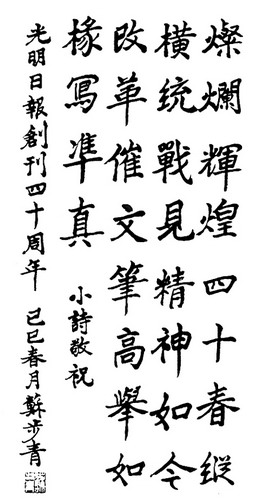 燦爛輝煌四十春縱
橫統戰見精神如今
改革催文筆高舉如
椽寫準真
小詩敬祝
光明日報創刊四十周年
己巳春月蘇步青